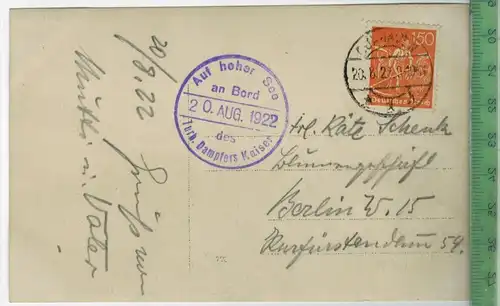 20/8.22
Gruß von
Mutti u. Vater
Auf hoher See
an Bord
20. AUG. 1922
des
Turb. Dampfers Kaiser
150
Deutsches Reich
20.8.22
Frl. Käte Schenk
Blumengeschäft
Berlin W. 15
Kurfürstendamm 54.